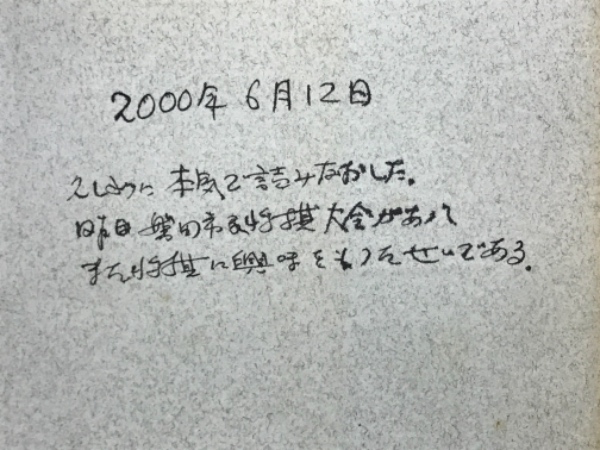 2000年 6月12日
久しぶりに 本気で詰みなおした。
昨日 磐田市民将棋大会があって
また将棋に興味をもったせいである。